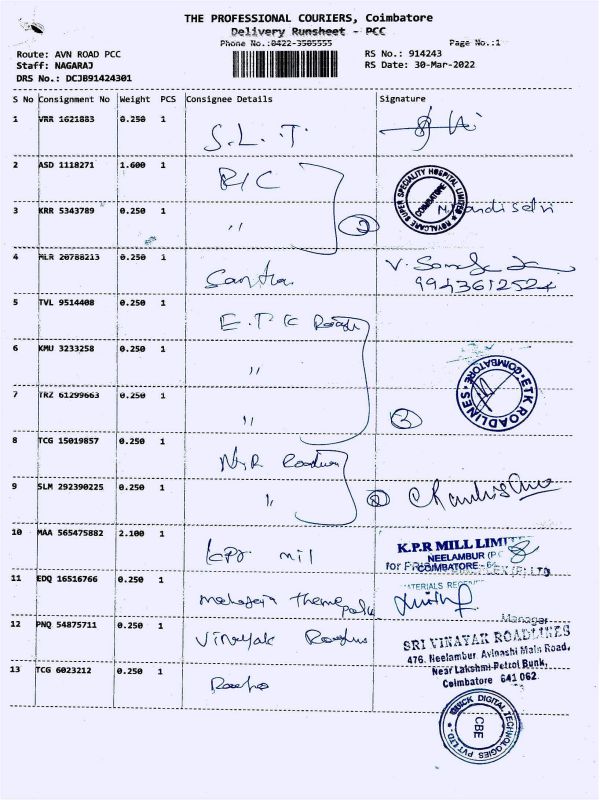 THE PROFESSIONAL COURIERS, Coimbatore
Delivery Runsheet - PCC
Phone No.:0422-3505555
Page No.:1
Route: AVN ROAD PCC
RS No.: 914243
Staff: NAGARAJ
RS Date: 30-Mar-2022
DRS No.: DCJB91424301
S No Consignment No Weight PCS Consignee Details Signature
1 VRR 1621883 0.250 1 S.L.T.
2 ASD 1118271 1.600 1 R/C
ROYALCARE SUPER SPECIALITY HOSPITAL LIMITED COIMBATORE
3 KRR 5343789 0.250 1 " 2
4 MLR 20788213 0.250 1
9943612524
5 TVL 9514408 0.250 1 E.T.K
6 KMU 3233258 0.250 1 "
ETK ROADLINES COIMBATORE
7 TRZ 61299663 0.250 1 " 3
8 TCG 15019857 0.250 1
9 SLM 292390225 0.250 1 " 2
10 MAA 565475882 2.100 1 kpr mil
K.P.R MILL LIMIT
NEELAMBUR
for
COIMBATORE - 64
11 EDQ 16516766 0.250 1 theme
Manager
12 PNQ 54875711 0.250 1 Vinayak
SRI VINAYAK ROADLINES
476, Neelambur, Avinashi Main Road,
Near Lakshmi Petrol Bunk,
Coimbatore 641 062.
13 TCG 6023212 0.250 1
QUICK DIGITAL TECHNOLOGIES PVT LTD CBE